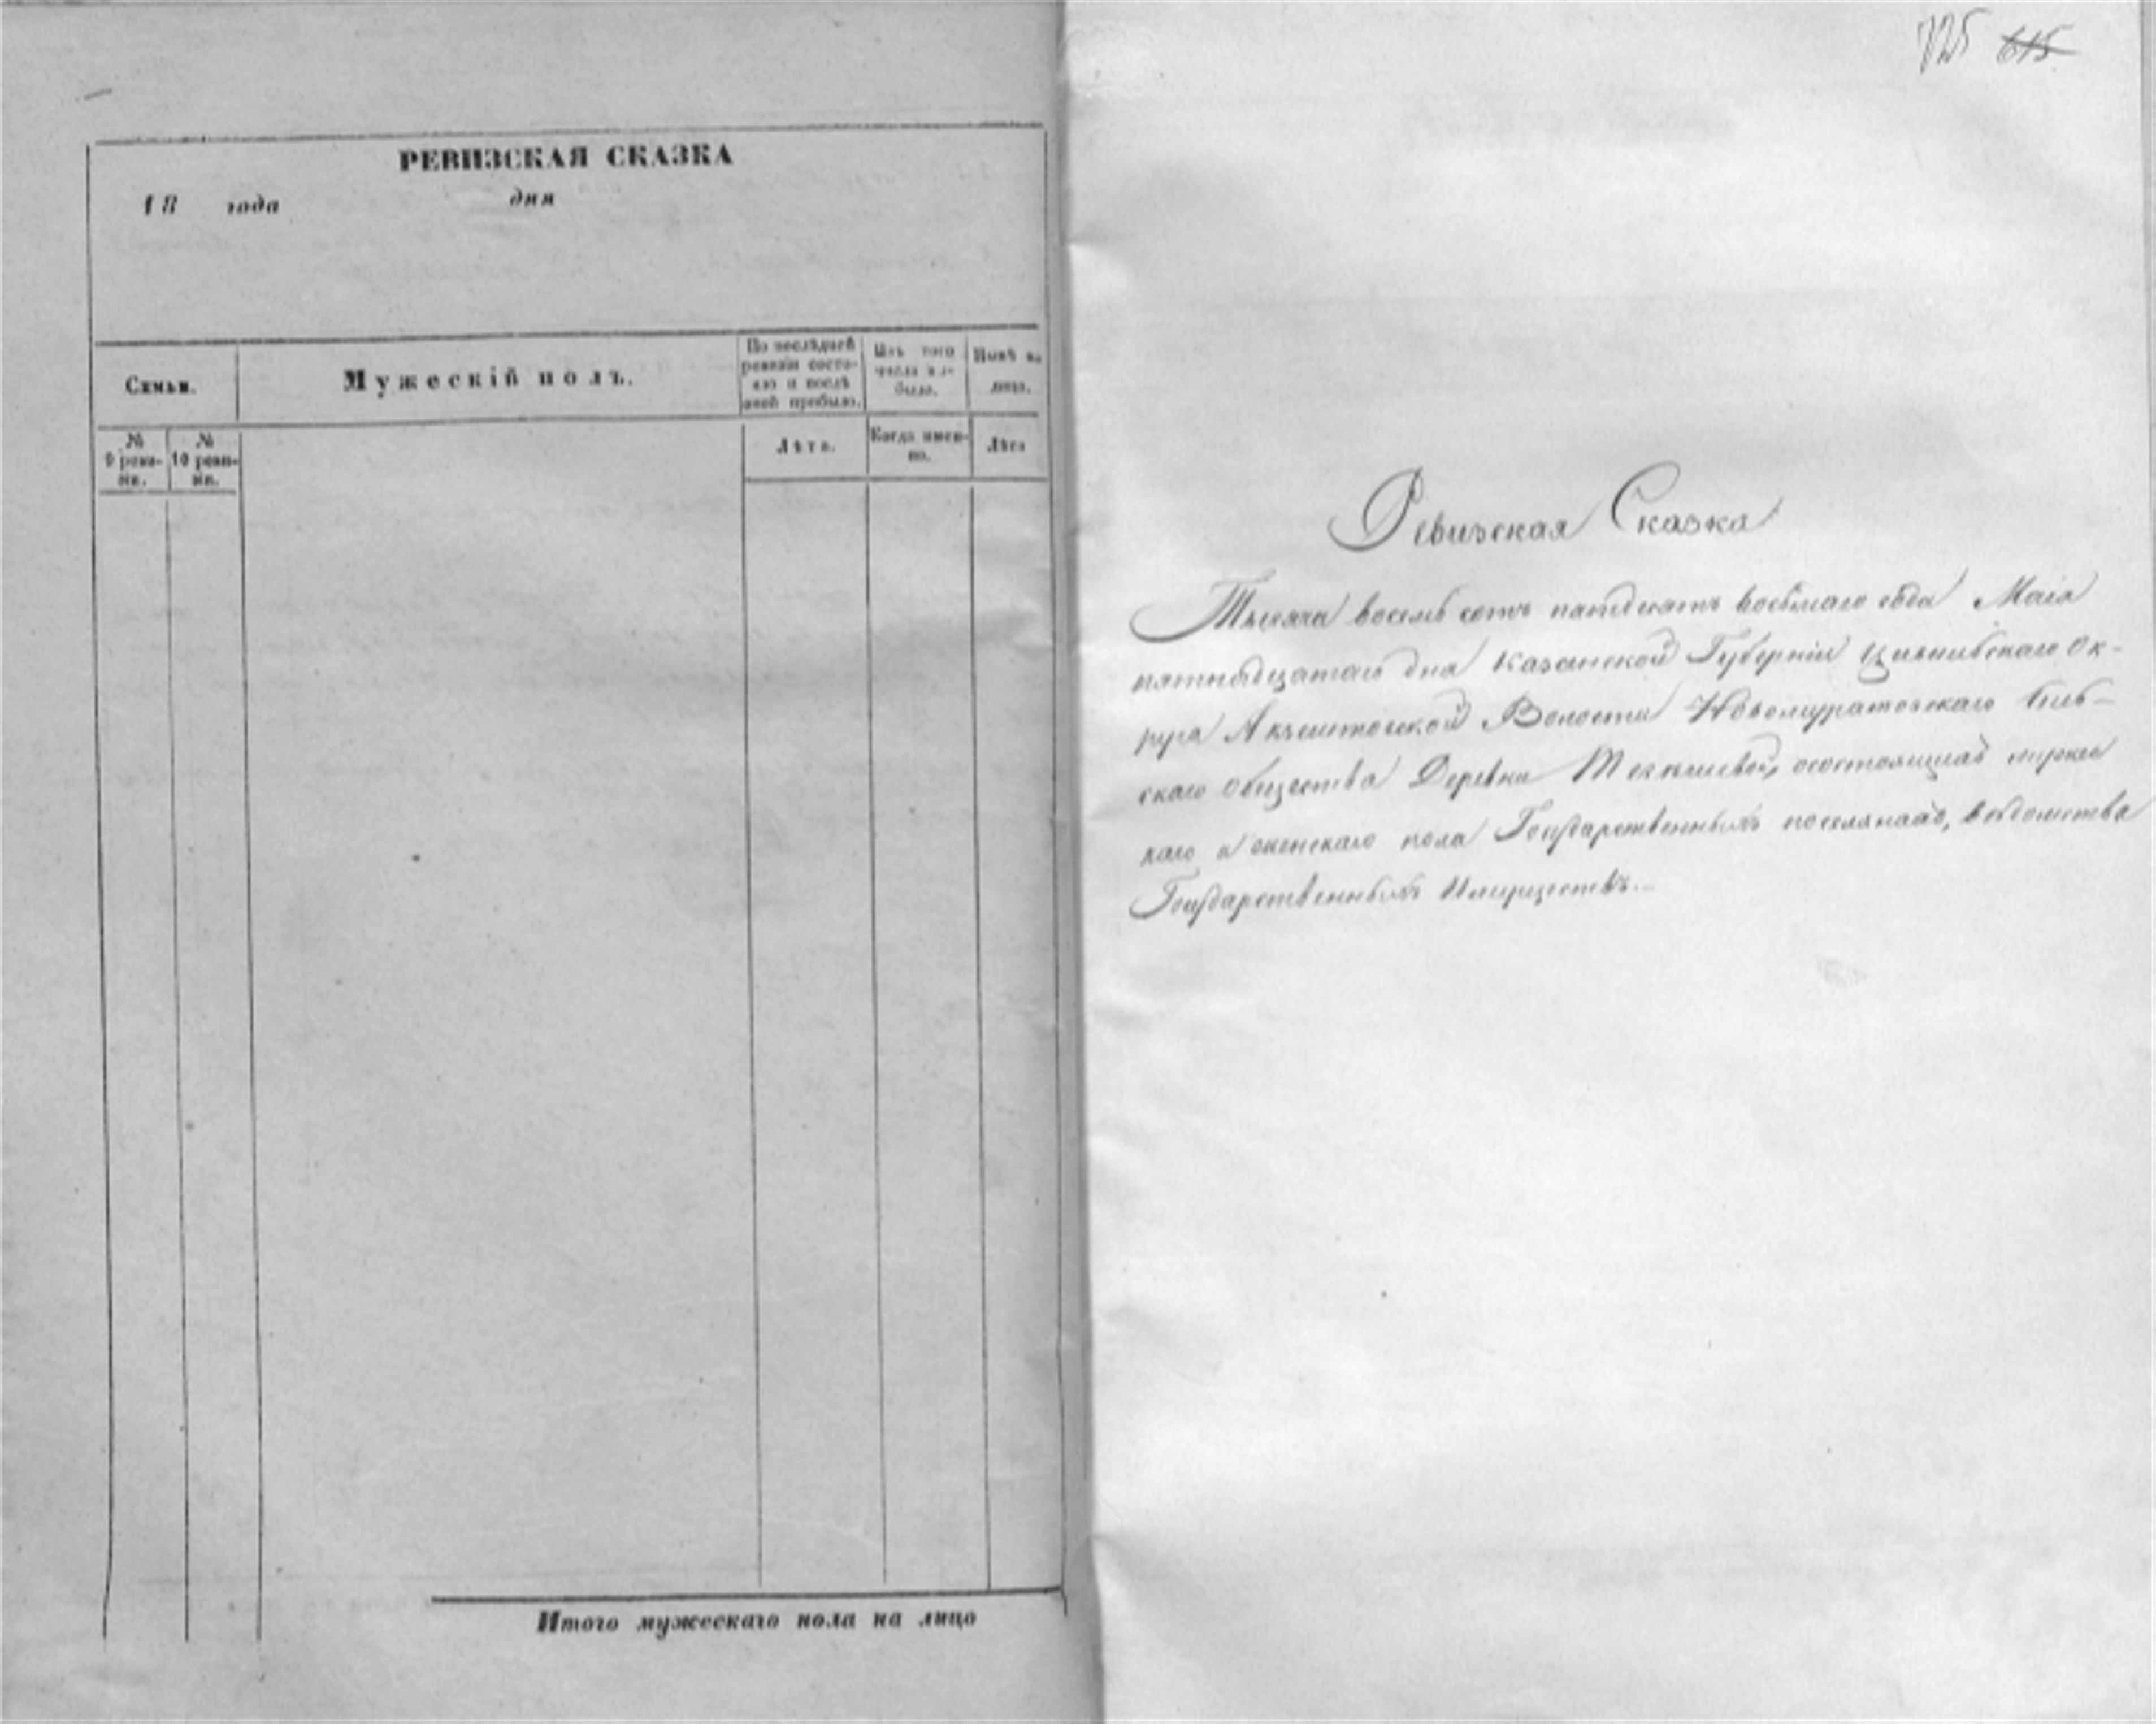 РЕВИЗСКАЯ СКАЗКА
18 года дня
Семьи.
Мужескій полъ.
По послѣдней ревизіи состояло и послѣ оной прибыло.
Изъ того числа выбыло.
Нынѣ на лицо.
№ 9 ревизіи.
№ 10 ревизіи.
Лѣта.
Когда именно.
Лѣта
Итого мужескаго пола на лицо
725 615
Ревизская Сказка
Тысяча восемь сотъ пятдесятъ восьмаго года Маія
пятнадцатаго дня Казанской Губерніи Цивильскаго Ок-
руга Акзегитовской Волости Новомуратовскаго Сель-
скаго Общества Деревни осостоящихъ мужес
каго и женскаго пола Государственныхъ поселянахъ, вѣдомства
Государственныхъ Имуществъ.